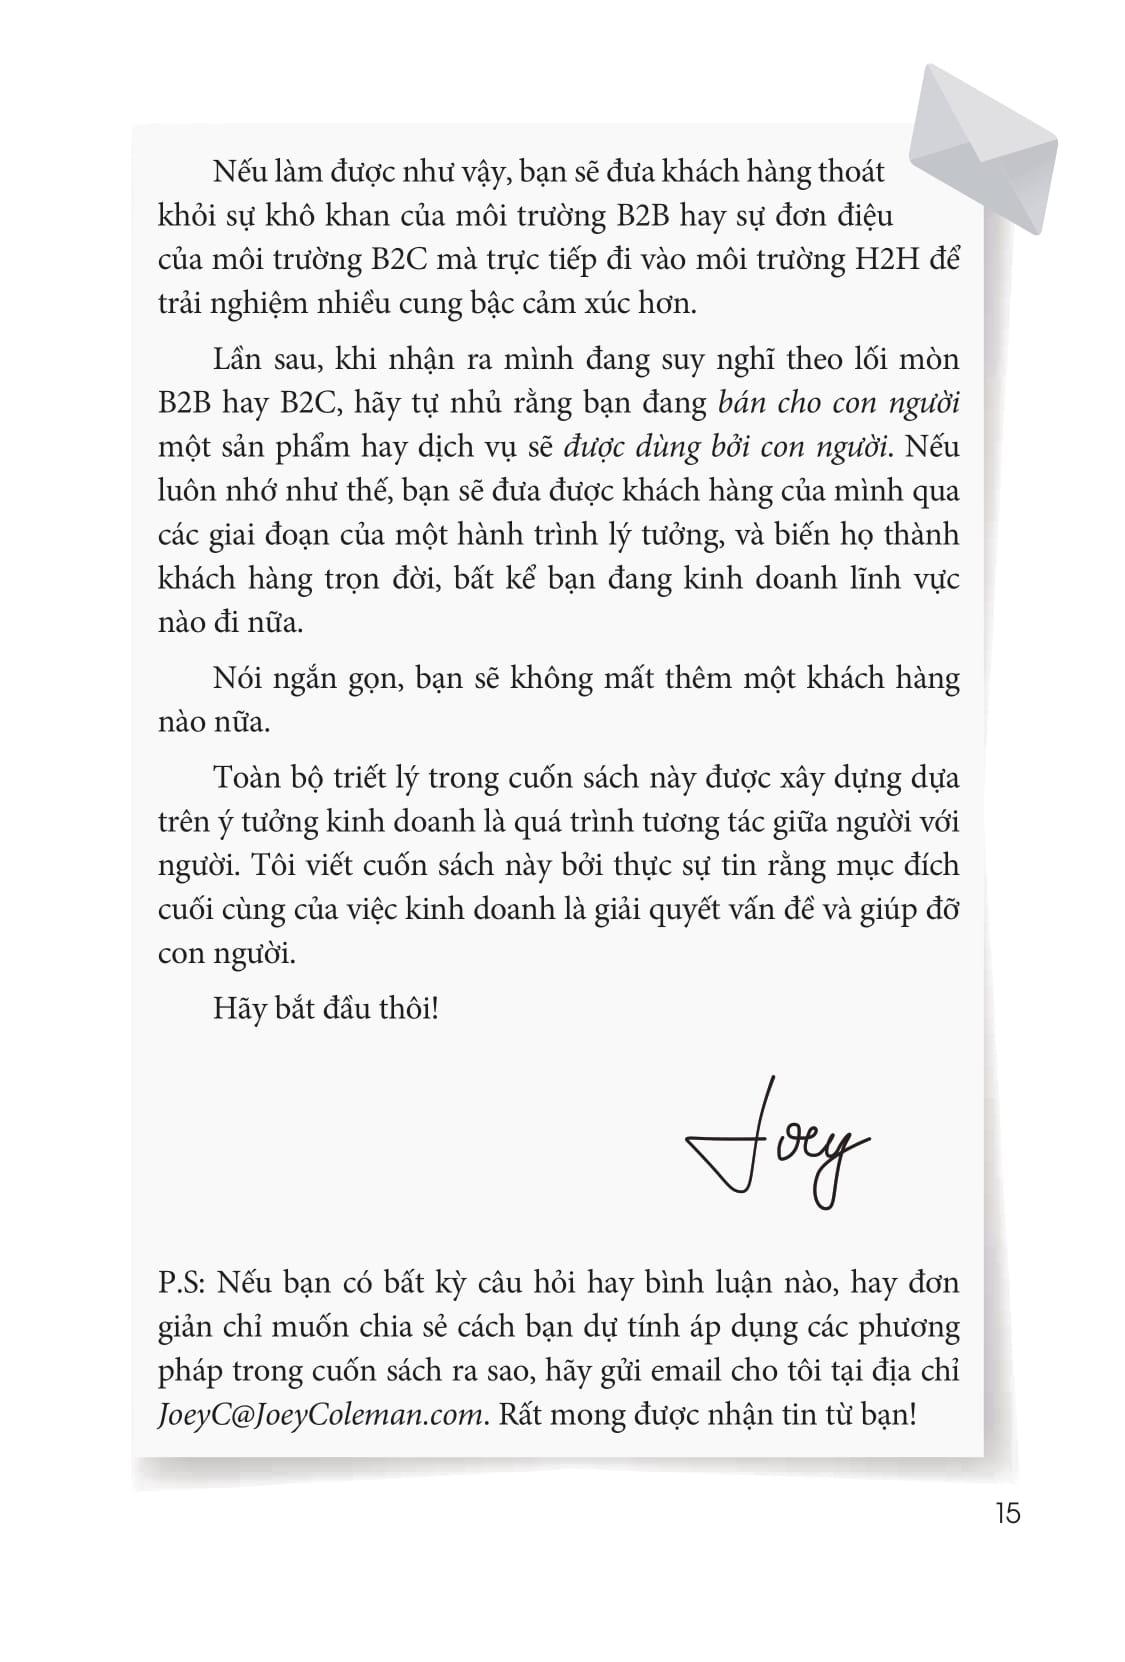 Nếu làm được như vậy, bạn sẽ đưa khách hàng thoát
khỏi sự khô khan của môi trường B2B hay sự đơn điệu
của môi trường B2C mà trực tiếp đi vào môi trường H2H để
trải nghiệm nhiều cung bậc cảm xúc hơn.
Lần sau, khi nhận ra mình đang suy nghĩ theo lối mòn
B2B hay B2C, hãy tự nhủ rằng bạn đang bán cho con người
một sản phẩm hay dịch vụ sẽ được dùng bởi con người. Nếu
luôn nhớ như thế, bạn sẽ đưa được khách hàng của mình qua
các giai đoạn của một hành trình lý tưởng, và biến họ thành
khách hàng trọn đời, bất kể bạn đang kinh doanh lĩnh vực
nào đi nữa.
Nói ngắn gọn, bạn sẽ không mất thêm một khách hàng
nào nữa.
Toàn bộ triết lý trong cuốn sách này được xây dựng dựa
trên ý tưởng kinh doanh là quá trình tương tác giữa người với
người. Tôi viết cuốn sách này bởi thực sự tin rằng mục đích
cuối cùng của việc kinh doanh là giải quyết vấn đề và giúp đỡ
con người.
Hãy bắt đầu thôi!
Joey
P.S: Nếu bạn có bất kỳ câu hỏi hay bình luận nào, hay đơn
giản chỉ muốn chia sẻ cách bạn dự tính áp dụng các phương
pháp trong cuốn sách ra sao, hãy gửi email cho tôi tại địa chỉ
JoeyC@JoeyColeman.com. Rất mong được nhận tin từ bạn!
15